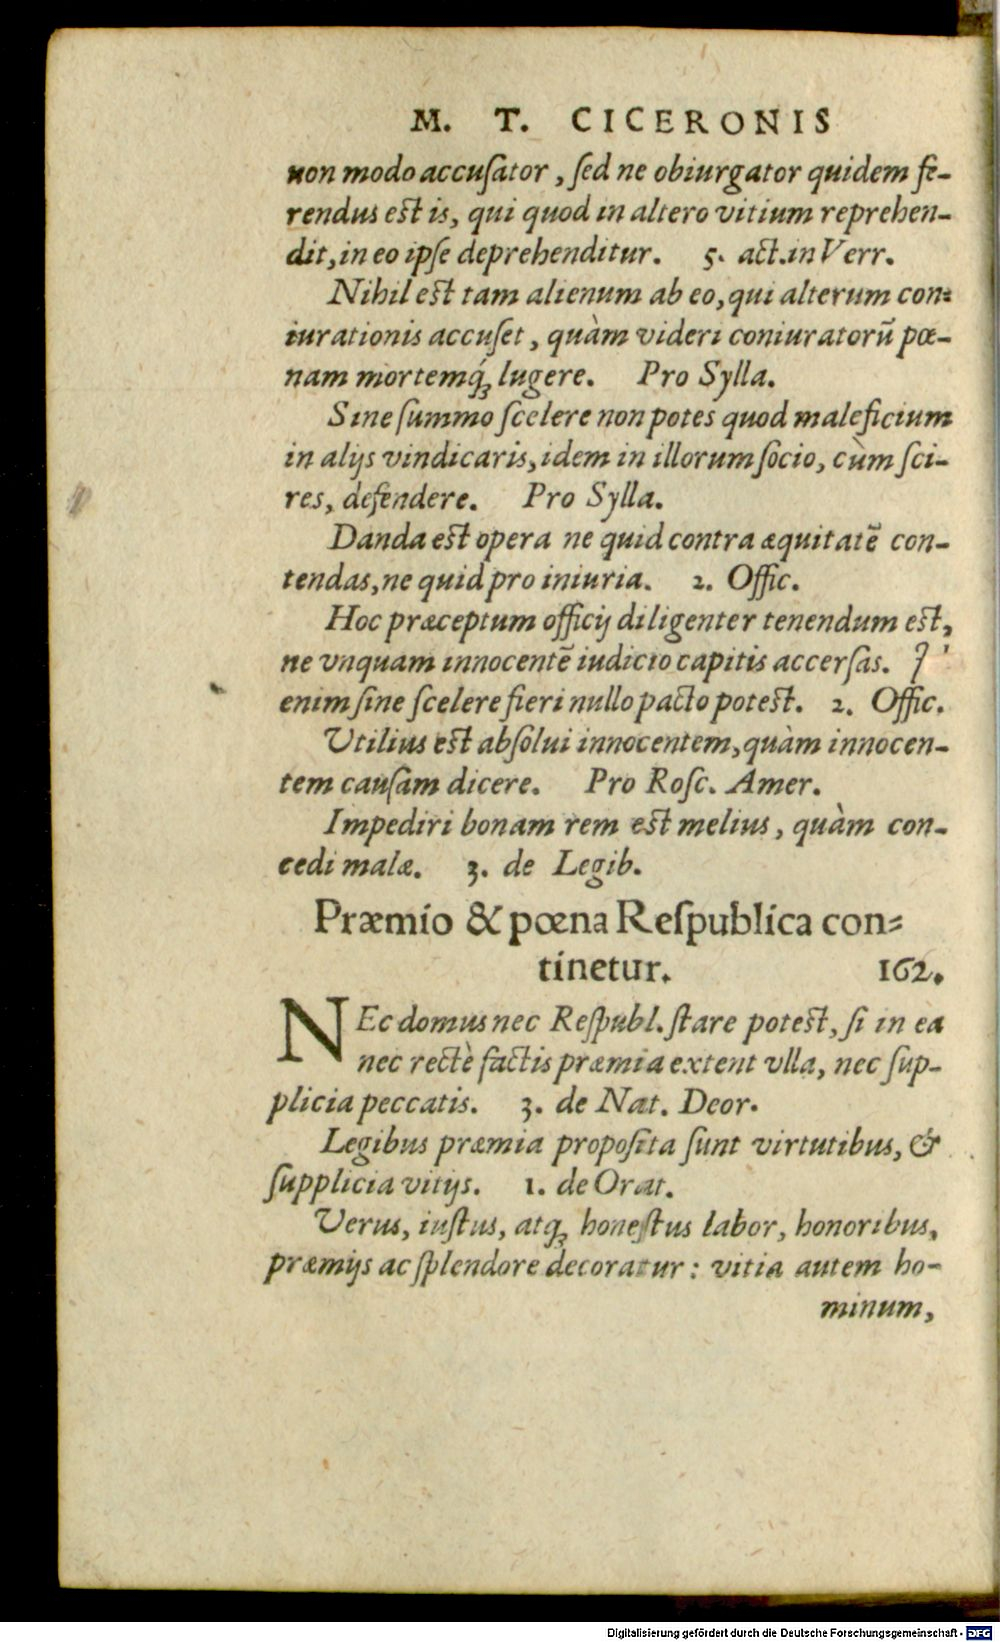 M. T. CICERONIS
non modo accuſator, ſed ne obiurgator quidem fe-
rendus eſt is, qui quod in altero vitium reprehen-
dit, in eo ipſe deprehenditur. 5. act. in Verr.
Nihil eſt tam alienum ab eo, qui alterum con=
iurationis accuſet, quàm videri coniuratorũ pœ-
nam mortemq́; lugere. Pro Sylla.
Sine ſummo ſcelere non potes quod maleficium
in alijs vindicaris, idem in illorum ſocio, cùm ſci-
res, defendere. Pro Sylla.
Danda eſt opera ne quid contra æquitatẽ con-
tendas, ne quid pro iniuria. 2. Offic.
Hoc præceptum officij diligenter tenendum eſt,
ne vnquam innocentẽ iudicio capitis accerſas.
enim ſine ſcelere fieri nullo pacto poteſt. 2. Offic.
Vtilius eſt abſolui innocentem, quàm innocen-
tem cauſam dicere. Pro Roſc. Amer.
Impediri bonam rem eſt melius, quàm con-
cedi malæ. 3. de Legib.
Præmio & pœna Reſpublica con=
tinetur. 162.
NEc domus nec Reſpubl. ſtare poteſt, ſi in ea
nec rectè factis præmia extent vlla, nec ſup-
plicia peccatis. 3. de Nat. Deor.
Legibus præmia propoſita ſunt virtutibus, &
ſupplicia vitijs. 1. de Orat.
Verus, iuſtus, atq; honeſtus labor, honoribus,
præmijs ac ſplendore decoratur: vitia autem ho-
minum,
Digitalisierung gefördert durch die Deutsche Forschungsgemeinschaft - DFG